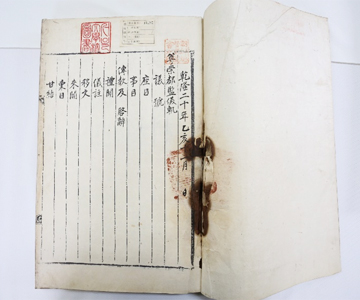 乾隆二十年乙亥 月 日
崇都監儀軌
議號
座目
事目
傳教及啓辭
禮關
儀註
移文
來關
稟目
甘結